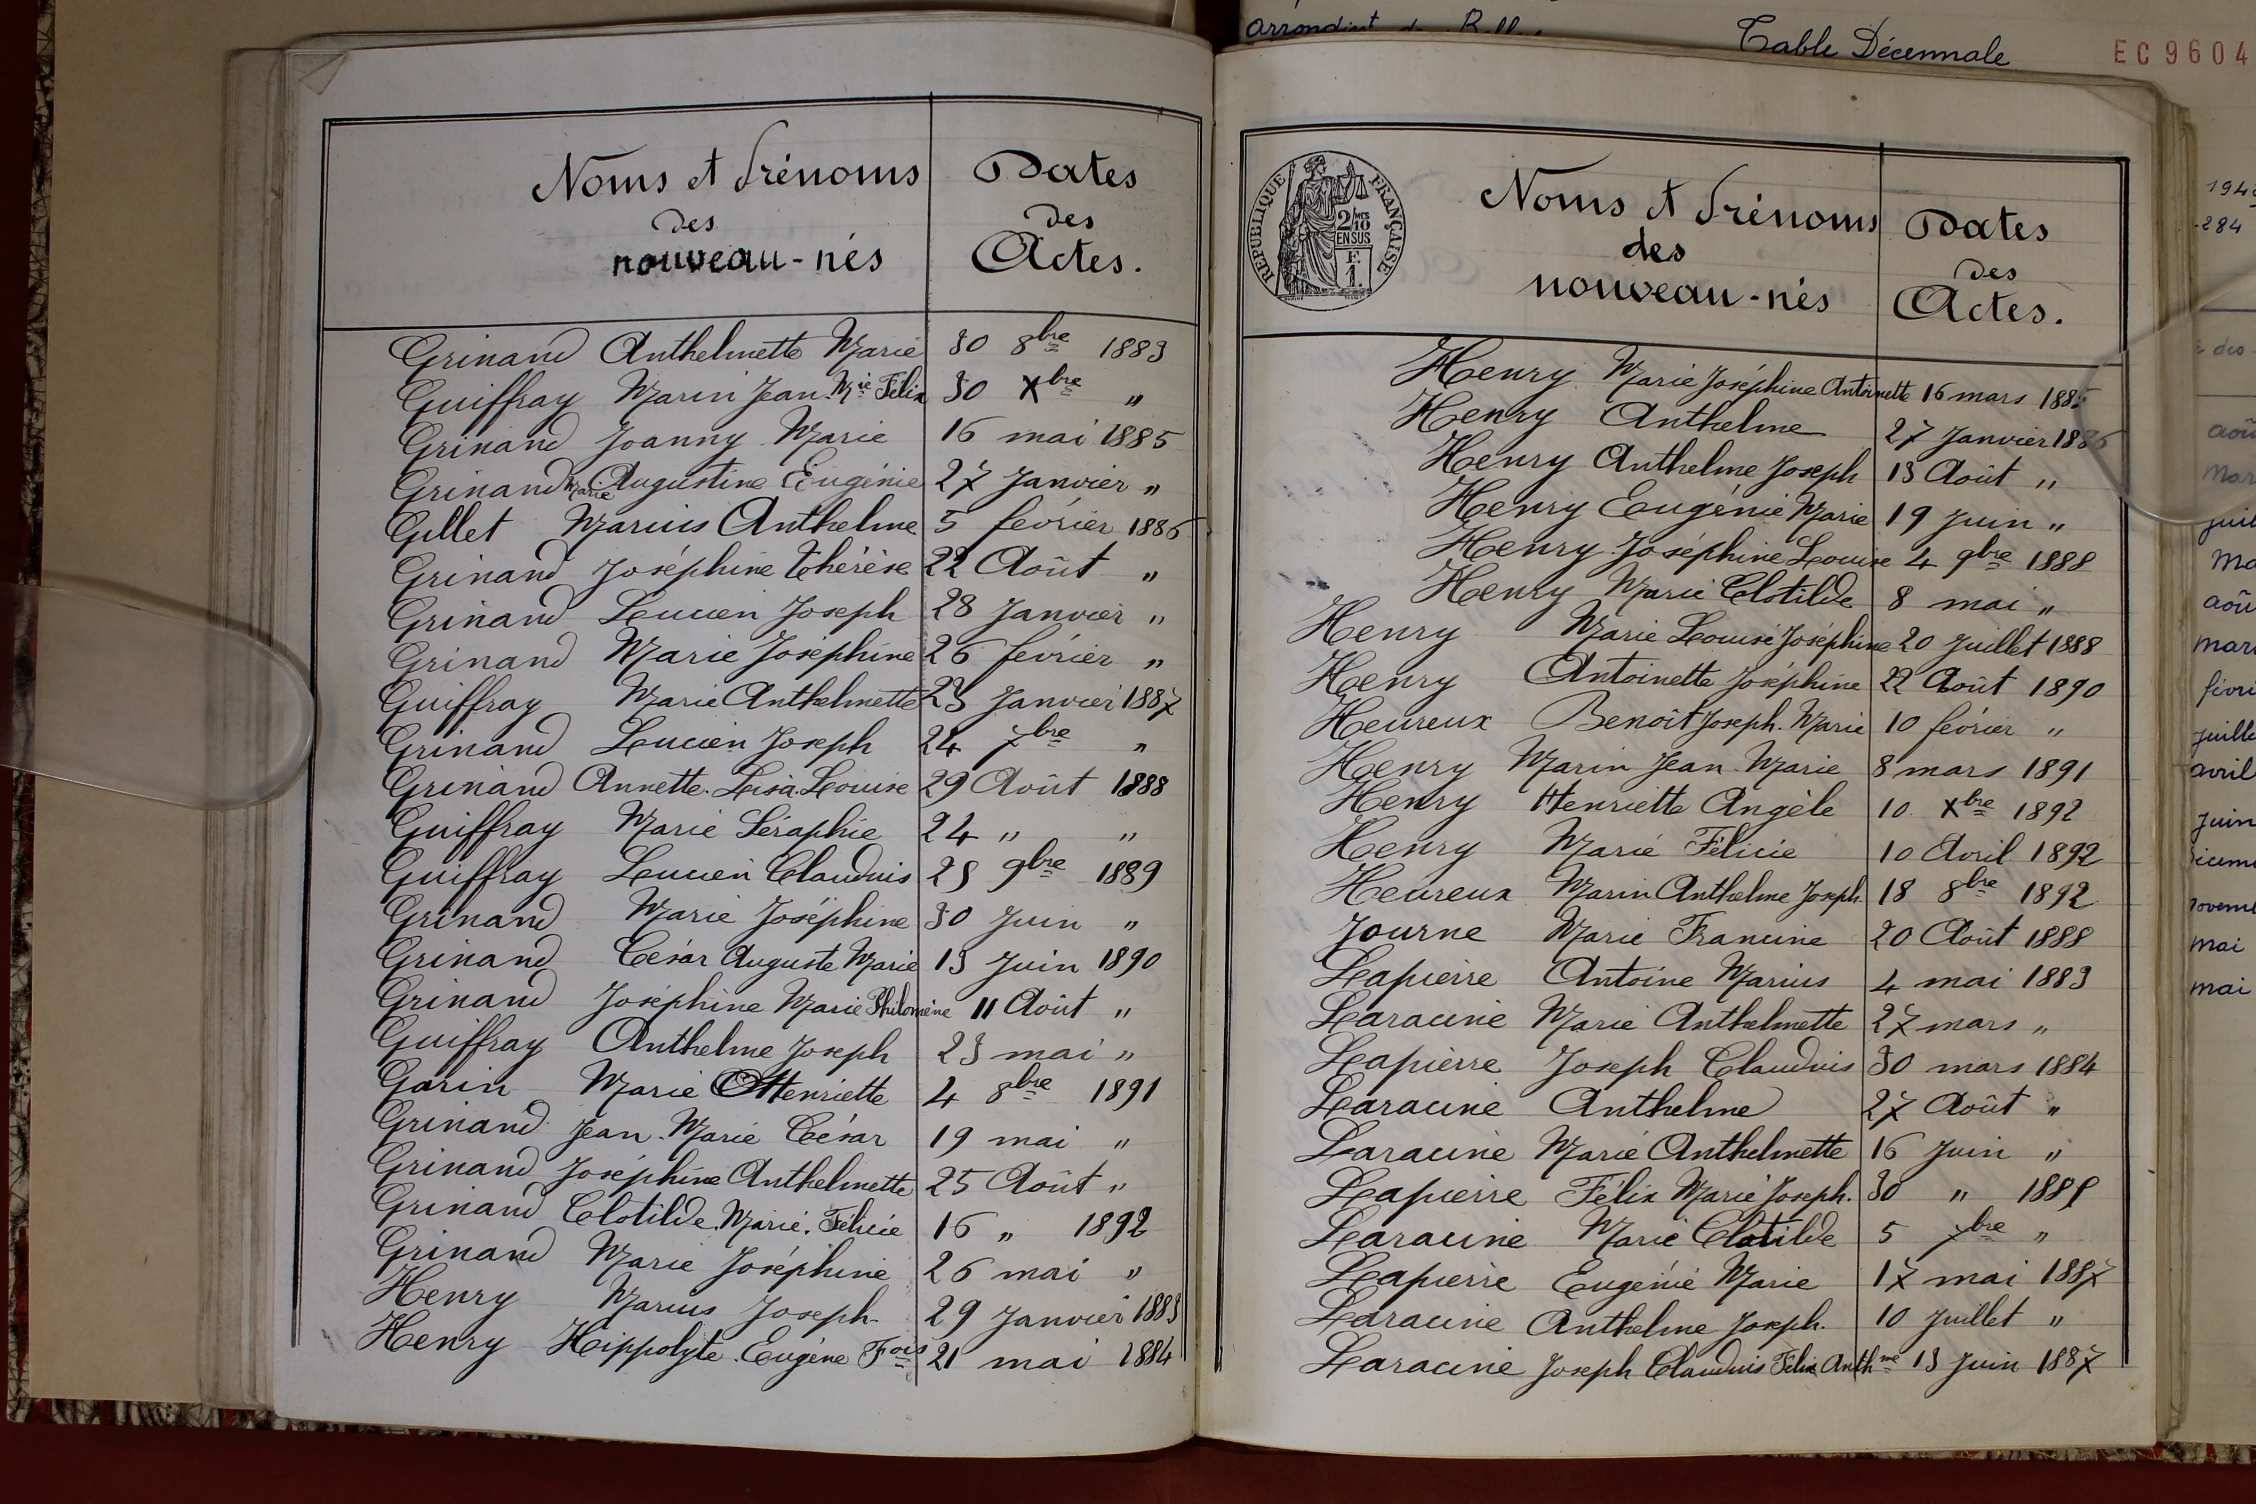 Table Décennale
EC9604
Noms et Prénoms
des
nouveau-nés
Dates
des
Actes.
Grinand Anthelmette Marie 30 8bre 1883
Guiffray Marin Jean Mie Félix 30 Xbre "
Grinand Joanny Marie 16 mai 1885
Grinand Marie Augustine Eugénie 27 Janvier "
Gillet Marius Anthelme 5 février 1886
Grinand Joséphine Thérèse 22 Août "
Grinand Lucien Joseph 28 Janvier "
Grinand Marie Joséphine 26 février "
Guiffray Marie Anthelmette 23 Janvier 1887
Grinand Lucien Joseph 24 7bre "
Grinand Annette. Lisa. Louise 29 Août 1888
Guiffray Marie Séraphie 24 " "
Guiffray Lucien Claudius 23 9bre 1889
Grinand Marie Joséphine 30 Juin "
Grinand César Auguste Marie 13 Juin 1890
Grinand Joséphine Marie Philomène 11 Août "
Guiffray Anthelme Joseph 23 mai "
Garin Marie Henriette 4 8bre 1891
Grinand Jean. Marie César 19 mai "
Grinand Joséphine Anthelmette 25 Août "
Grinand Clotilde. Marie. Félicie 16 " 1892
Grinand Marie Joséphine 26 mai "
Henry Marius Joseph. 29 Janvier 1883
Henry Hippolyte. Eugène Fois 21 mai 1884
REPUBLIQUE FRANÇAISE
2/10 EN SUS
F.
1.
Noms et Prénoms
des
nouveau-nés
Dates
des
Actes.
Henry Marie Joséphine Antoinette 16 mars 1885
Henry Anthelme 27 Janvier 1886
Henry Anthelme Joseph 13 Août "
Henry Eugénie Marie 19 Juin "
Henry Joséphine Louise 4 9bre 1888
Henry Marie Clotilde 8 mai "
Henry Marie Louise Joséphine 20 Juillet 1888
Henry Antoinette Joséphine 22 Août 1890
Heureux Benoît Joseph. Marie 10 février "
Henry Marin Jean Marie 8 mars 1891
Henry Henriette Angèle 10 Xbre 1892
Henry Marie Félicie 10 Avril 1892
Heureux Marin Anthelme Joseph. 18 8bre 1892
Journe Marie Francine 20 Août 1888
Lapierre Antoine Marius 4 mai 1883
Laracine Marie Anthelmette 27 mars "
Lapierre Joseph Claudius 30 mars 1884
Laracine Anthelme 27 Août "
Laracine Marie Anthelmette 16 Juin "
Lapierre Félix Marie Joseph. 30 "
Laracine Marie Clotilde 5 7bre "
Lapierre Eugénie Marie 17 mai 1887
Laracine Anthelme Joseph. 10 Juillet "
Laracine Joseph Claudius Félix Anthme 13 Juin 1887
284
mai
mai